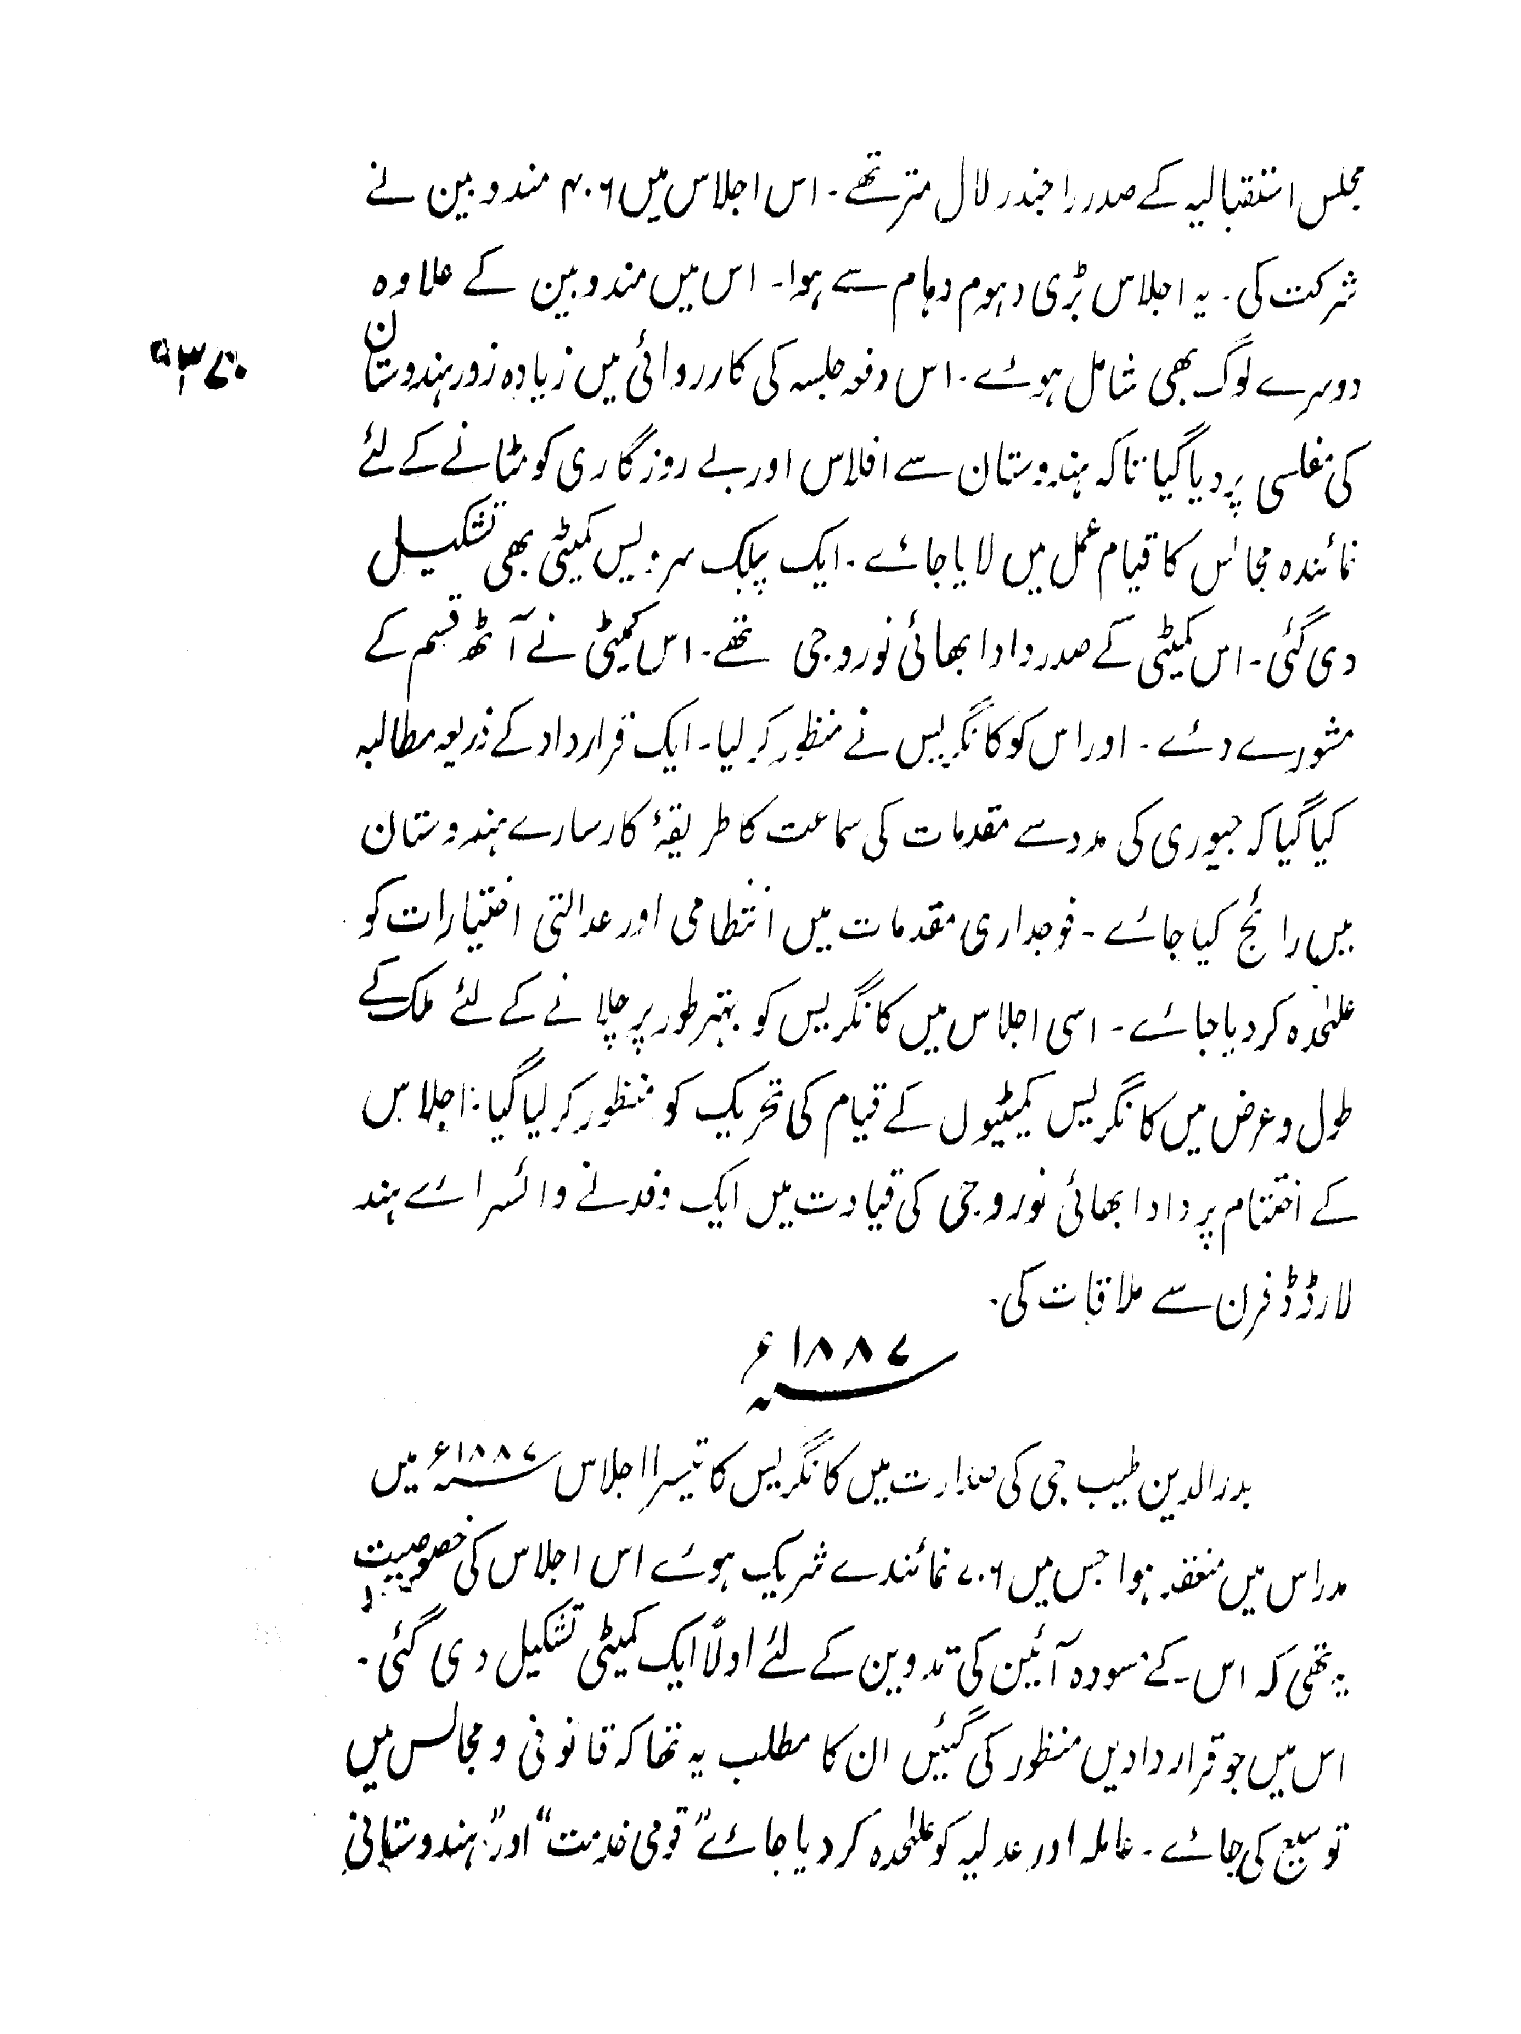 مجلس استقبالیہ کے صدر راجندر لال متر تھے ۔ اس اجلاس میں ۴۰۶ مندوبین نے
شرکت کی ۔ یہ اجلاس بڑی دہوم دہام سے ہوا ۔ اس میں مندوبین کے علاوہ
دوسرے لوگ بھی شامل ہوئے ۔ اس دفعہ جلسہ کی کارروائی میں زیادہ زور ہندوستان
کی مفلسی پر دیا گیا تاکہ ہندوستان سے افلاس اور بے روزگاری کو مٹانے کے لئے
نمائندہ مجالس کا قیام عمل میں لایا جائے ۔ ایک پبلک سرویس کمیٹی بھی تشکیل
دی گئی ۔ اس کمیٹی کے صدر دادا بھائی نوروجی تھے ۔ اس کمیٹی نے آٹھ قسم کے
مشورے دئے ۔ اور اس کو کانگریس نے منظور کر لیا ۔ ایک قرار داد کے ذریعہ مطالبہ
کیا گیا کہ جیوری کی مدد سے مقدمات کی سماعت کا طریقۂ کار سارے ہندوستان
میں رائج کیا جائے ۔ فوجداری مقدمات میں انتظامی اور عدالتی اختیارات کو
علٰحدہ کر دیا جائے ۔ اسی اجلاس میں کانگریس کو بہتر طور پر چلانے کے لئے ملک کے
طول و عرض میں کانگریس کمیٹیوں کے قیام کی تحریک کو منظور کر لیا گیا ۔ اجلاس
کے اختتام پر دادا بھائی نوروجی کی قیادت میں ایک وفد نے وائسرائے ہند
لارڈ ڈفرن سے ملاقات کی ۔
سنہ ۱۸۸۷ ء
بدر الدین طیب جی کی صدارت میں کانگریس کا تیسرا اجلاس سنہ ۱۸۸۷ء میں
مدراس میں منعقد ہوا جس میں ۷۰۶ نمائندے شریک ہوئے اس اجلاس کی خصوصیت
یہ تھی کہ اس کے مسودہ آئین کی تدوین کے لئے اولاً ایک کمیٹی تشکیل دی گئی ۔
اس میں جو قرار دادیں منظور کی گئیں ان کا مطلب یہ تھا کہ قانونی و مجالس میں
توسیع کی جائے ۔ عاملہ اور عدلیہ کو علٰحدہ کر دیا جائے ”قومی خدمت“ اور ”ہندوستانی